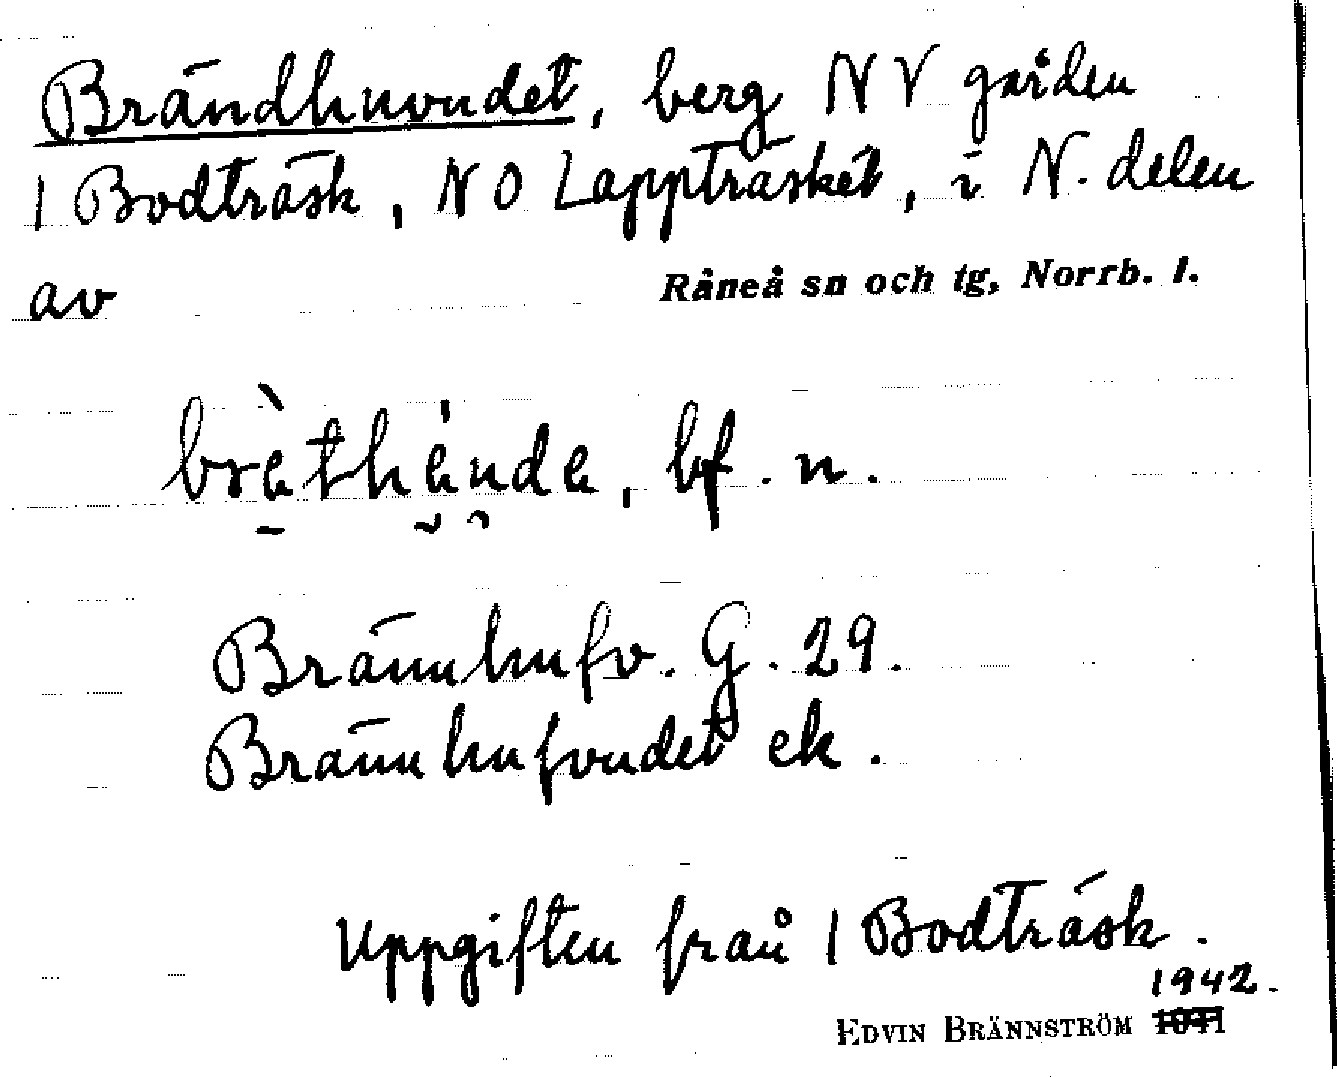 Brändhuvudet, berg NV gården
1 Bodträsk, NO Lappträsket, i N. delen
av Råneå sn och tg, Norrb. l.
bràthǻnda, bf. n.
Brännhufv. G. 29.
Brännhufvudet ek.
Uppgiften från 1 Bodträsk.
1942.
EDVIN BRÄNNSTRÖM 1941